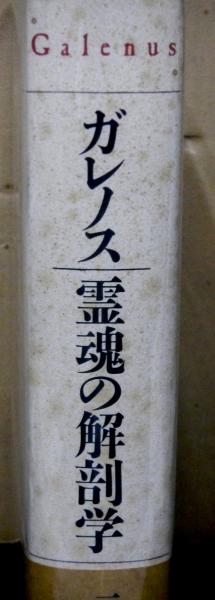 Galenus
ガレノス
霊魂の解剖学